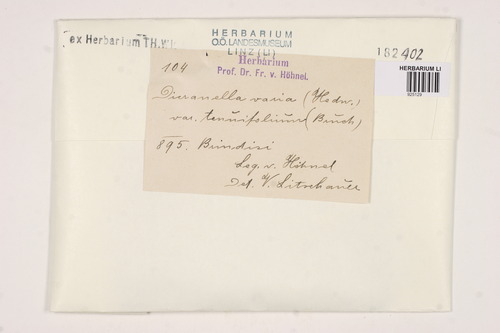 HERBARIUM
O.Ö. LANDESMUSEUM
LINZ (LI)
ex Herbarium TH.
182402
HERBARIUM LI
Herbarium
Prof. Dr. Fr. v. Höhnel.
104
Dicranella varia (Hedw.)
var. tenuifolium (Bruch)
895. Brindisi
Leg. v. Höhnel
Det. V. Litschauer